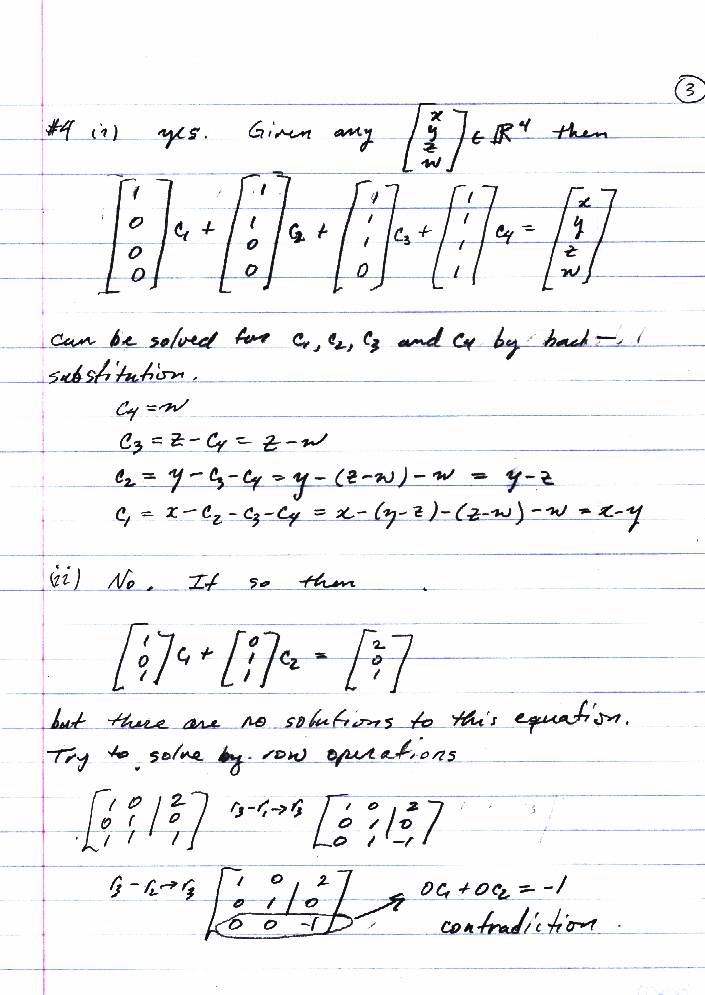 3
#4 (i) yes. Given any [x y z w] ∈ ℝ⁴ then
[1 0 0 0] c₁ + [1 1 0 0] c₂ + [1 1 1 0] c₃ + [1 1 1 1] c₄ = [x y z w]
can be solved for c₁, c₂, c₃ and c₄ by back-
substitution.
c₄ = w
c₃ = z - c₄ = z - w
c₂ = y - c₃ - c₄ = y - (z-w) - w = y-z
c₁ = x - c₂ - c₃ - c₄ = x - (y-z) - (z-w) - w = x-y
(ii) No. If so then
[1 0 1] c₁ + [0 1 1] c₂ = [2 0 1]
but there are no solutions to this equation.
Try to solve by row operations
[1 0 | 2; 0 1 | 0; 1 1 | 1] r₃-r₁→r₃ [1 0 | 2; 0 1 | 0; 0 1 | -1]
r₃-r₂→r₃ [1 0 | 2; 0 1 | 0; 0 0 | -1] → 0c₁ + 0c₂ = -1
contradiction.